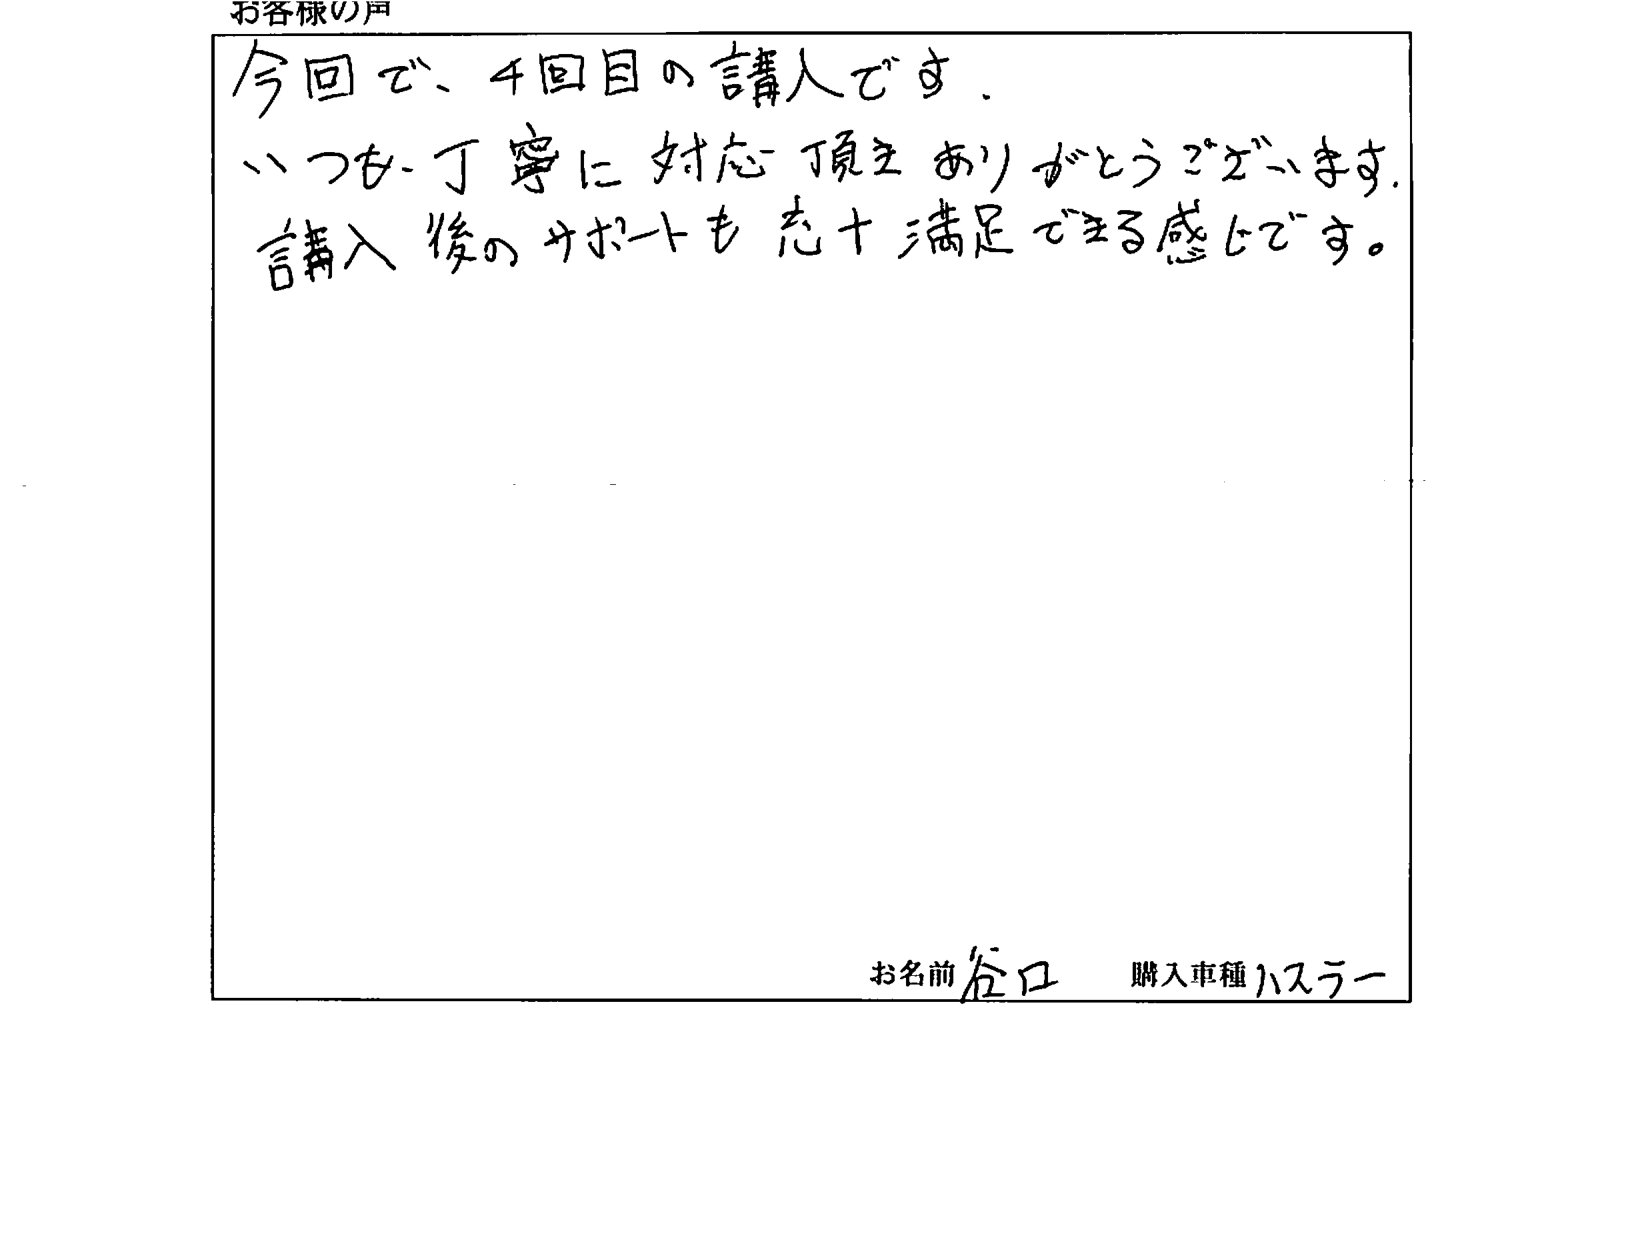 お客様の声
今回で、4回目の講入です.
いつも丁寧に対応頂きありがとうございます.
講入後のサポートも充十満足できる感じです。
お名前 谷口 購入車種 ハスラー